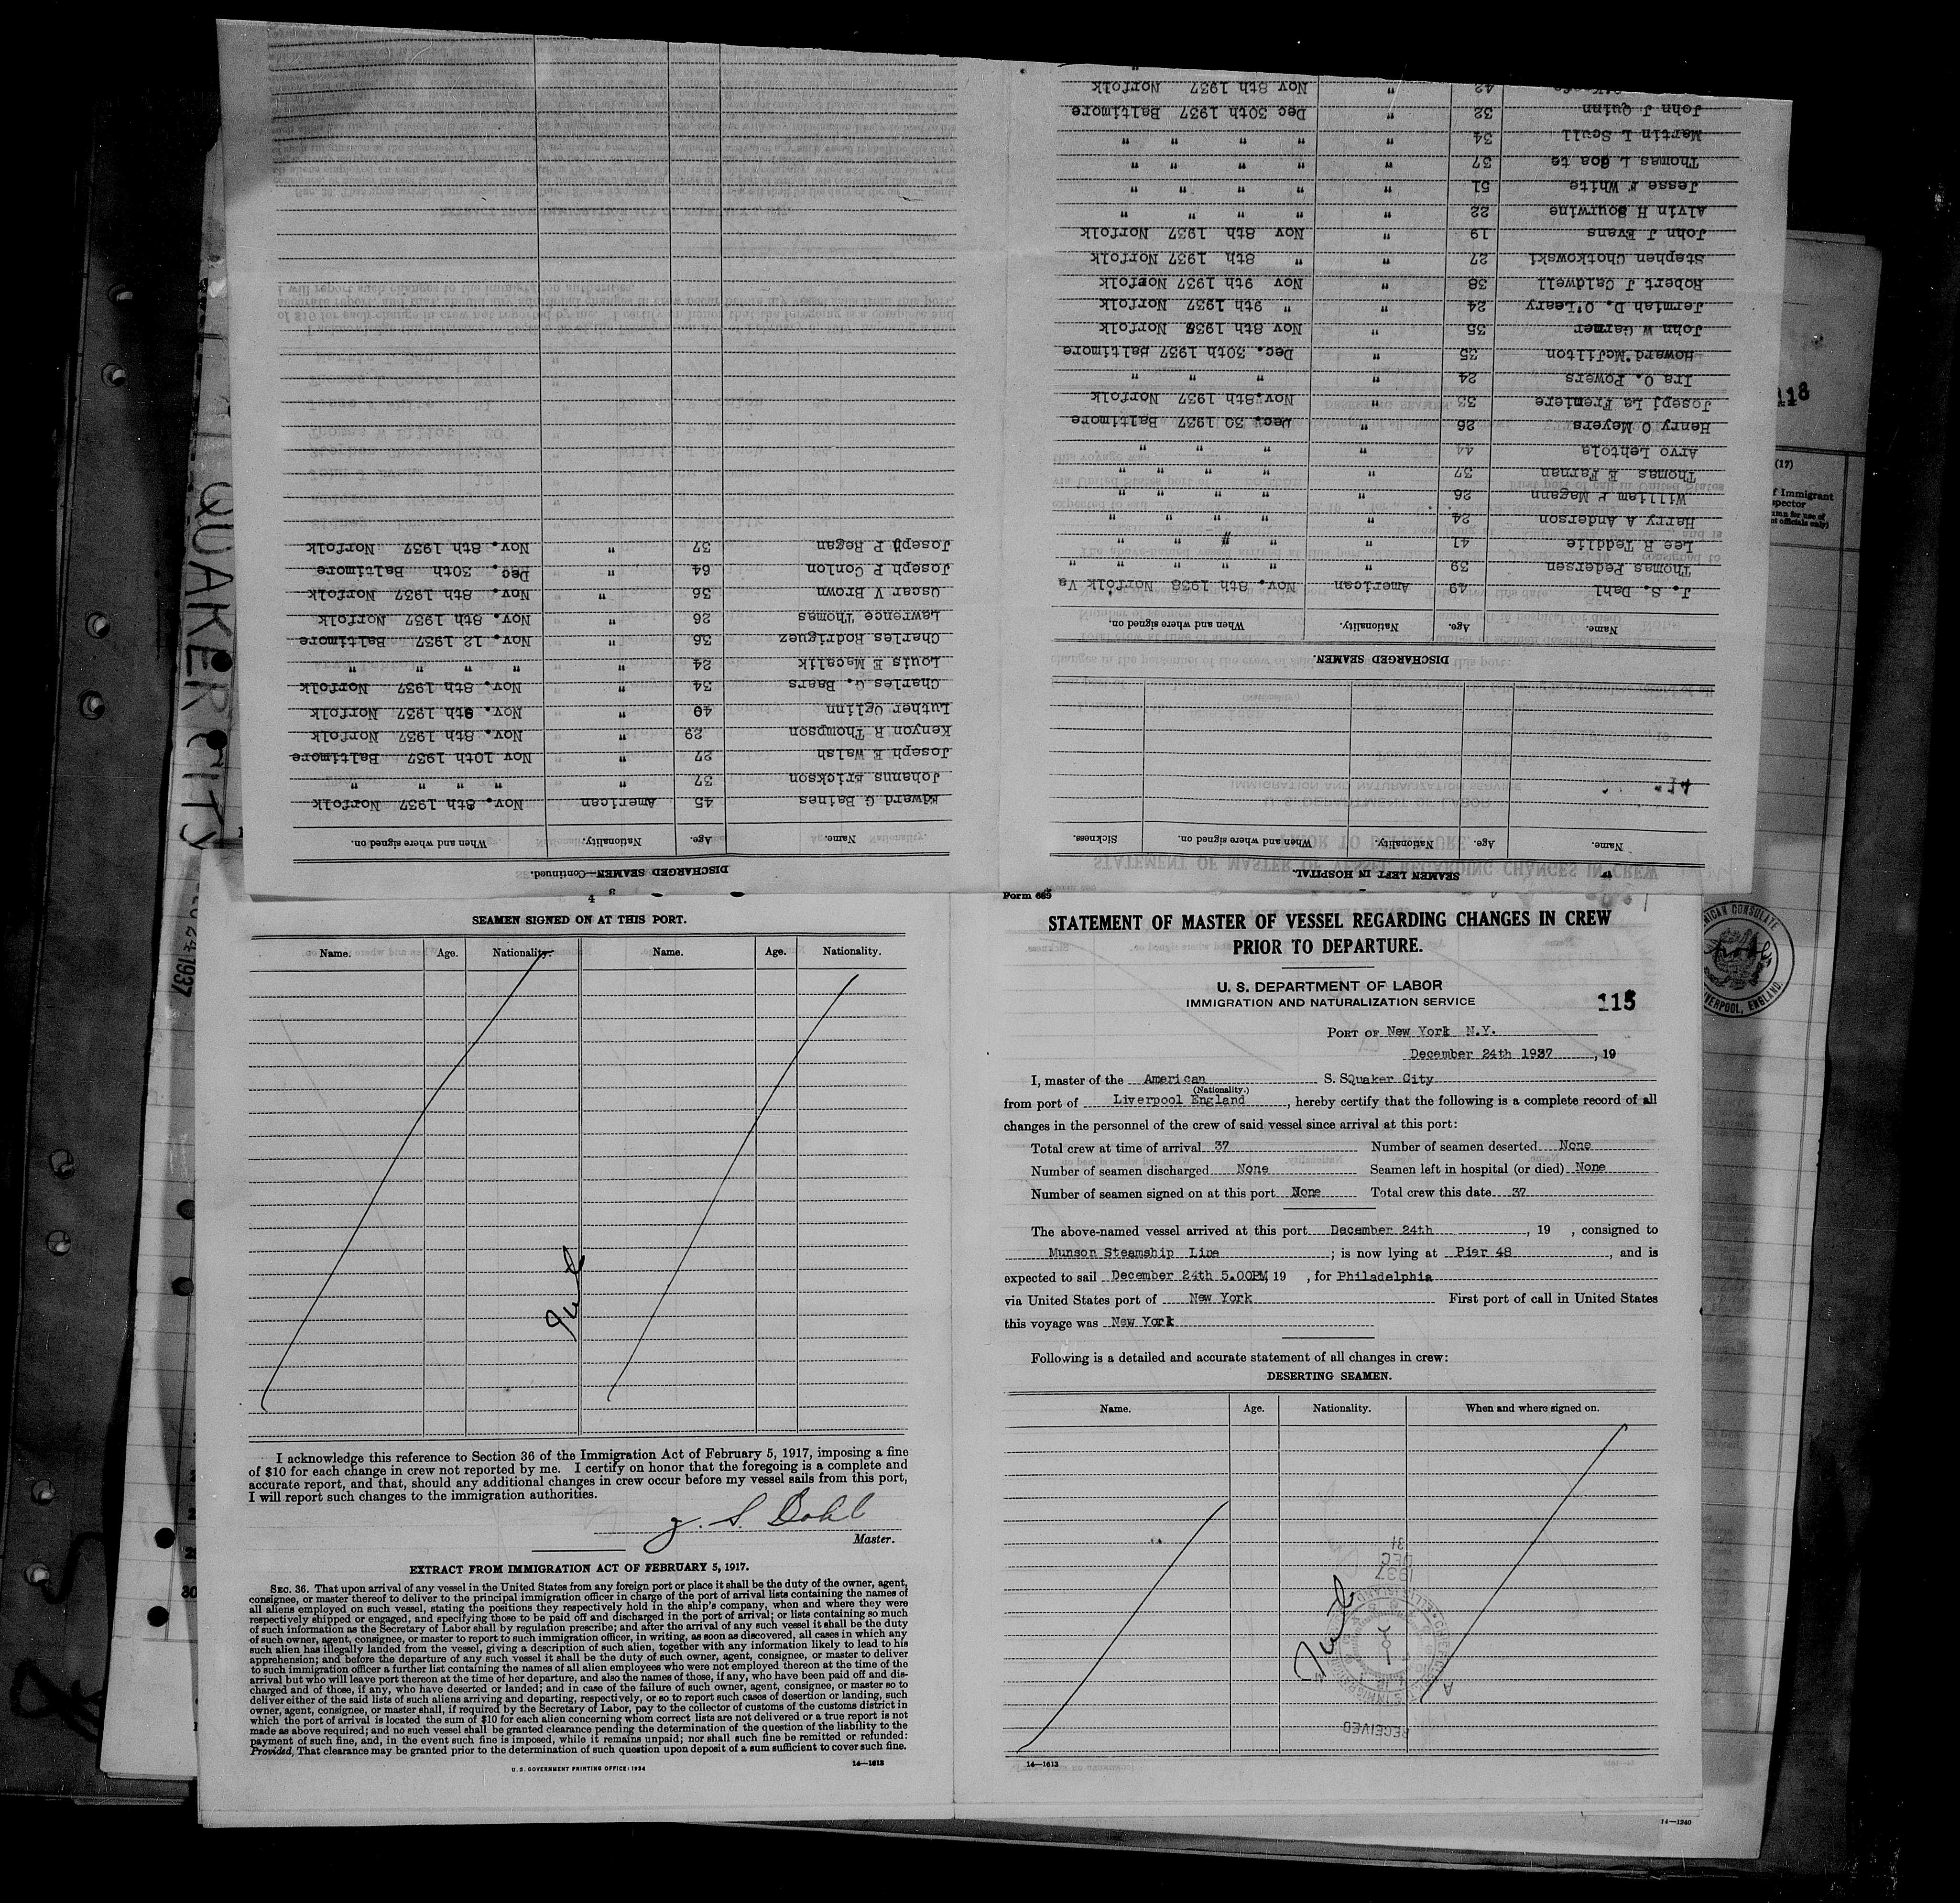 Form 689
STATEMENT OF MASTER OF VESSEL REGARDING CHANGES IN CREW
PRIOR TO DEPARTURE.
U. S. DEPARTMENT OF LABOR
IMMIGRATION AND NATURALIZATION SERVICE
115
PORT OF New York N.Y.
December 24th 1937, 19
I, master of the American S. SQuaker City
(Nationality.)
from port of Liverpool England, hereby certify that the following is a complete record of all
changes in the personnel of the crew of said vessel since arrival at this port:
Total crew at time of arrival 37 Number of seamen deserted None
Number of seamen discharged None Seamen left in hospital (or died) None
Number of seamen signed on at this port None Total crew this date 37
The above-named vessel arrived at this port December 24th, 19 , consigned to
Munson Steamship Line; is now lying at Pier 48, and is
expected to sail December 24th 5.00PM, 19 , for Philadelphia
via United States port of New York First port of call in United States
this voyage was New York
Following is a detailed and accurate statement of all changes in crew:
DESERTING SEAMEN.
Name. Age. Nationality. When and where signed on.
RECEIVED
1937
DEC
31
14—1613
14—1240
4
SEAMEN SIGNED ON AT THIS PORT.
Name. Age. Nationality. Name. Age. Nationality.
I acknowledge this reference to Section 36 of the Immigration Act of February 5, 1917, imposing a fine
of $10 for each change in crew not reported by me. I certify on honor that the foregoing is a complete and
accurate report, and that, should any additional changes in crew occur before my vessel sails from this port,
I will report such changes to the immigration authorities.
J. S. Dahl
Master.
EXTRACT FROM IMMIGRATION ACT OF FEBRUARY 5, 1917.
SEC. 36. That upon arrival of any vessel in the United States from any foreign port or place it shall be the duty of the owner, agent,
consignee, or master thereof to deliver to the principal immigration officer in charge of the port of arrival lists containing the names of
all aliens employed on such vessel, stating the positions they respectively hold in the ship's company, when and where they were
respectively shipped or engaged, and specifying those to be paid off and discharged in the port of arrival; or lists containing so much
of such information as the Secretary of Labor shall by regulation prescribe; and after the arrival of any such vessel it shall be the duty
of such owner, agent, consignee, or master to report to such immigration officer, in writing, as soon as discovered, all cases in which any
such alien has illegally landed from the vessel, giving a description of such alien, together with any information likely to lead to his
apprehension; and before the departure of any such vessel it shall be the duty of such owner, agent, consignee, or master to deliver
to such immigration officer a further list containing the names of all alien employees who were not employed thereon at the time of the
arrival but who will leave port thereon at the time of her departure, and also the names of those, if any, who have been paid off and dis-
charged and of those, if any, who have deserted or landed; and in case of the failure of such owner, agent, consignee, or master so to
deliver either of the said lists of such aliens arriving and departing, respectively, or so to report such cases of desertion or landing, such
owner, agent, consignee, or master shall, if required by the Secretary of Labor, pay to the collector of customs of the customs district in
which the port of arrival is located the sum of $10 for each alien concerning whom correct lists are not delivered or a true report is not
made as above required; and no such vessel shall be granted clearance pending the determination of the question of the liability to the
payment of such fine, and, in the event such fine is imposed, while it remains unpaid; nor shall such fine be remitted or refunded:
Provided, That clearance may be granted prior to the determination of such question upon deposit of a sum sufficient to cover such fine.
U. S. GOVERNMENT PRINTING OFFICE: 1934 14—1613
SEAMEN LEFT IN HOSPITAL.
Name. Age. Nationality. When and where signed on. Sickness.
DISCHARGED SEAMEN.
Name. Age. Nationality. When and where signed on.
J. S. Dahl 49 American Nov. 8th 1938 Norfolk Va
Thomas Pedersen 39 " " " " "
Lee R Teddlie 41 " " " " "
Harry A Anderson 24 " " " " "
William P Magann 26 " " " " "
Thomas E Farnan 37 " " " " "
Arvo Lehtola 44 " " " "
Henry O Meyers 26 " Dec. 30 1937 Baltimore
Josepj La Fremiere 33 " Nov. 8th 1937 Norfolk
Ira O. Powers 24 " " " "
Howard McJilton 35 " Dec. 30th 1937 Baltimore
John W Garner 35 " Nov 8th 1937 Norfolk
Jermiah D. O'Leary 24 " " 9th 1937 Norfolk
Robert J Caldwell 38 " Nov 9th 1937 Norfolk
Stephen Chotkowski 27 " " 8th 1937 Norfolk
John J Evans 19 " Nov 8th 1937 Norfolk
Alvin H Sourwine 22 " " " " "
Jesse F White 51 " " " " "
Thomas L Coate 37 " " " " "
Martin L Scull 34 " " " " "
John J Quinn 32 " Dec 30th 1937 Baltimore
42 " Nov 8th 1937 Norfolk
DISCHARGED SEAMEN—Continued.
3
Name. Age. Nationality. When and where signed on.
Edward G Baines 45 American Nov. 8th 1937 Norfolk
Johanns Erickson 37 " " " " "
Joseph E Walsh 27 " Nov 10th 1937 Baltimore
Kenyon R Thompson 29 " Nov. 8th 1937 Norfolk
Luther Uglinn 40 " Nov. 9th 1937 Norfolk
Charles G. Baers 34 " Nov. 8th 1937 Norfolk
Louis E Macalik 24 " " " " "
Charles Rodriguez 36 " Nov. 12 1937 Baltimore
Lawrence Thomas 26 " Nov. 8th 1937 Norfolk
Oscar V Brown 36 " Nov. 8th 1937 Norfolk
Joseph P Conlon 64 " Dec. 30th Baltimore
Joseph P Regan 37 " Nov. 8th 1937 Norfolk
QUAKER CITY
1937
118
(17)
f Immigrant
AMERICAN CONSULATE
LIVERPOOL, ENGLAND.
30